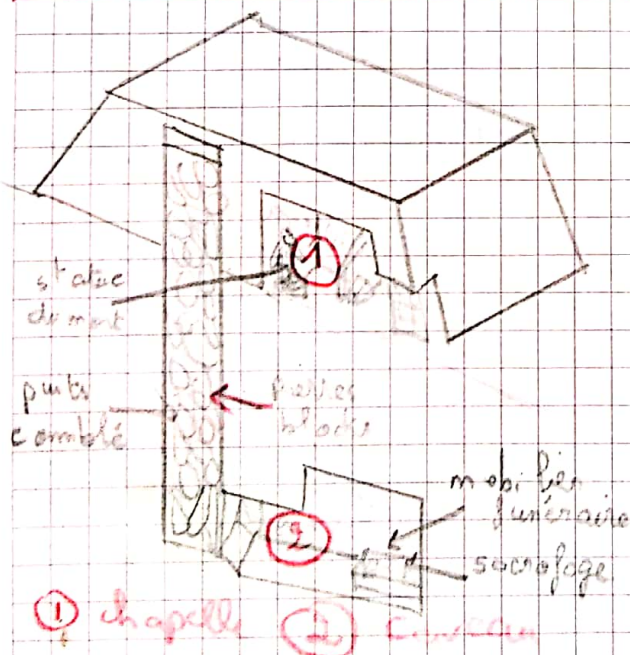 1
statue
du mort
puits
comblé
pierres
blocs
mobilier
funéraire
2
sacrofage
1 chapelle 2 caveau